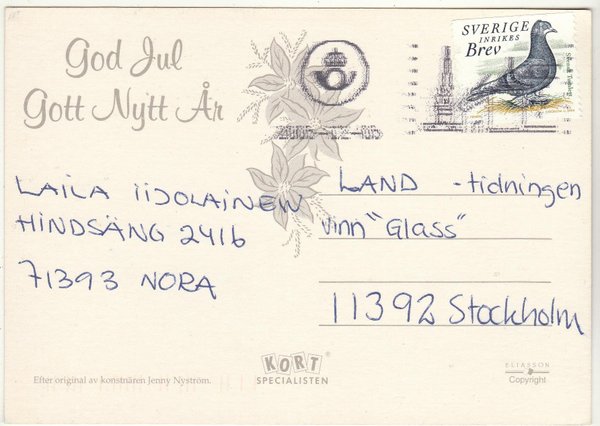 SVERIGE
INRIKES
Brev
God Jul
Gott Nytt År
LAILA IIDOLAINEN
HINDSÄNG 2416
71393 NORA
LAND -tidningen
vinn "Glass"
11392 Stockholm
Efter original av konstnären Jenny Nyström.
KORT
SPECIALISTEN
ELIASSON
Copyright